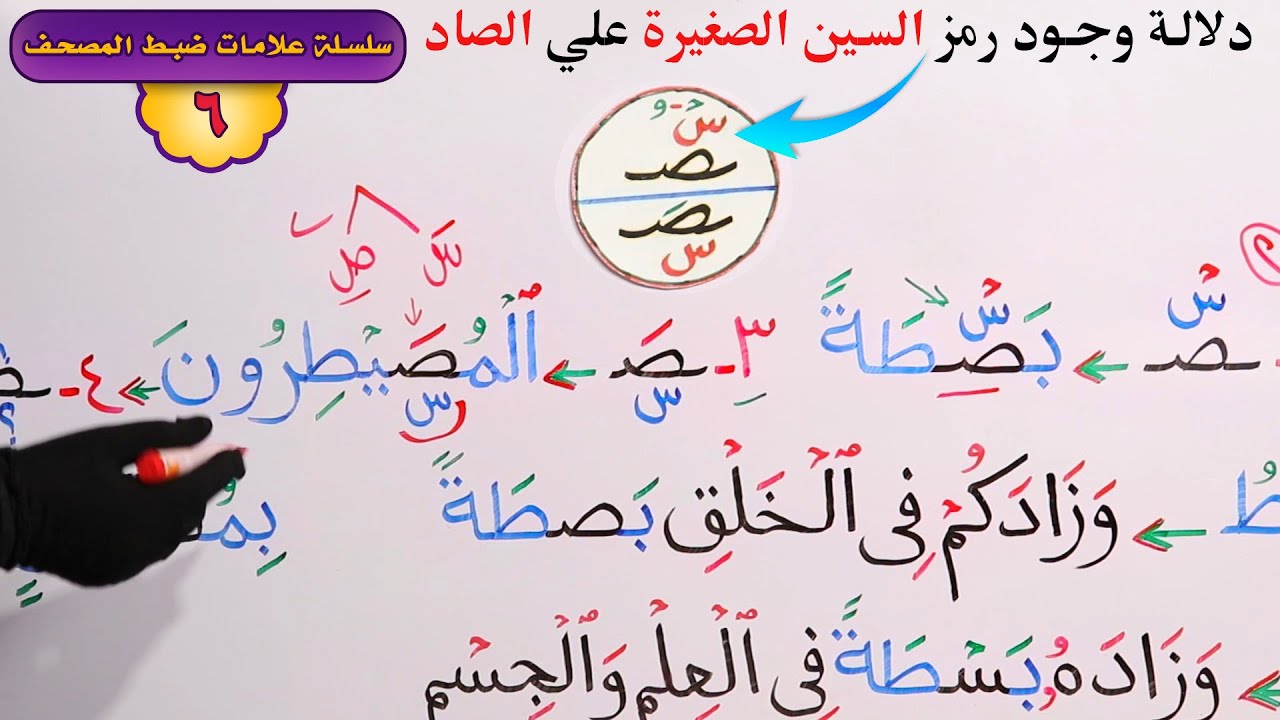 دلالة وجود رمز السين الصغيرة علي الصاد
سلسلة علامات ضبط المصحف
٦
س
صـ
صـ
س
صـ ← بَصۜۡطَةً
٣- صَـ ← ٱلۡمُصَۣيۡطِرُونَ
٤-
وَزَادَكُمۡ فِى ٱلۡخَلۡقِ بَصطَةً
وَزَادَهُۥ بَسۡطَةً فِى ٱلۡعِلۡمِ وَٱلۡجِسۡمِ